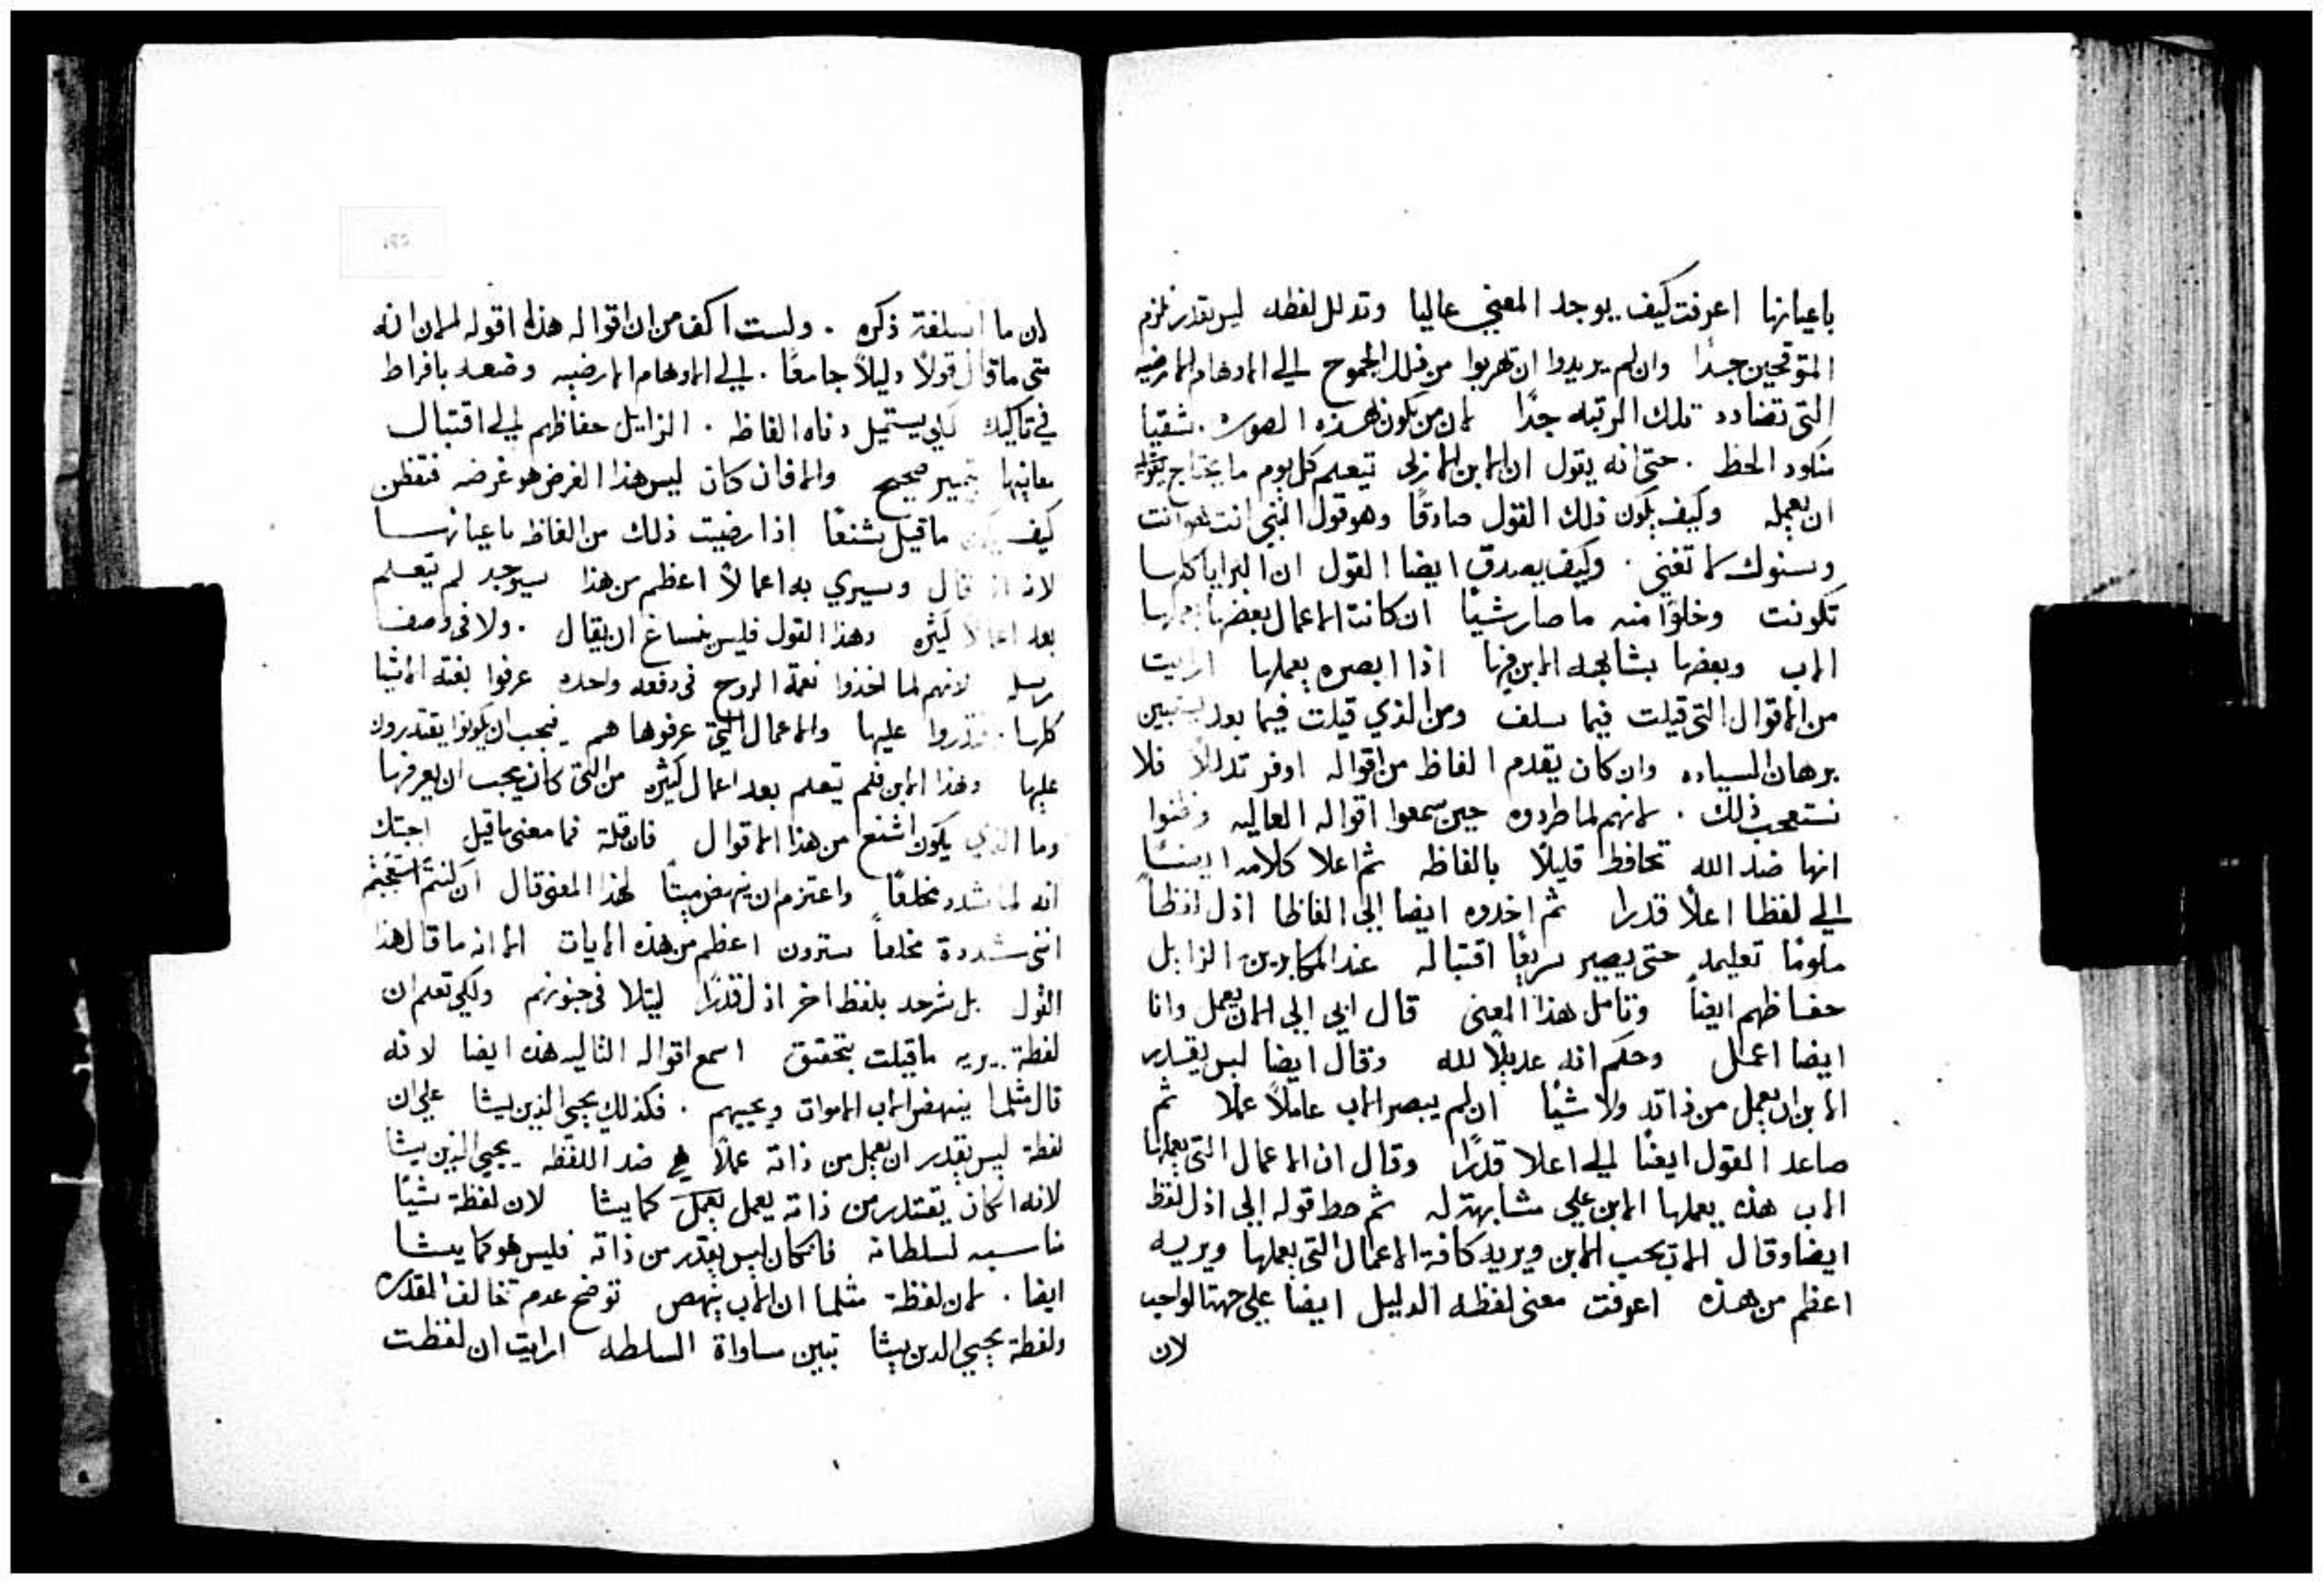 باعيانها اعرفت كيف يوجد المعني عاليا وتدلل لفظه ليس يقدر يلزم
المتوقحين جدا وان لم يريدوا ان يهربوا من ذلك الجموح الي الاوهام الارضيه
التي تضادد تلك الرتبه جدا لان من يكون بهذه الصوره شقيا
منكود الحظ . حتى انه يقول ان الابن الازلي يتعلم كل يوم ما يحتاج
ان يعمله وكيف يكون ذلك القول صادقا وهو قول النبي انت هو انت
وسنوك لا تغني . وكيف يصدق ايضا القول ان البرايا كلها
تكونت وخلوا منه ما صار شيا ان كانت الاعمال بعضها يعملها
الاب وبعضها يشابهه الابن فيها اذا ابصره يعملها ارايت
من الاقوال التي قيلت فيما سلف ومن الذي قيلت فيما بعد يستبين
برهان السياده وان كان يقدم الفاظ من اقواله اوفر تدللا فلا
نستعجب ذلك . لانهم لما طردوه حين سمعوا اقواله العاليه وظنوا
انها ضد الله تحافظ قليلا بالفاظه ثم اعلا كلامه ايضا
الي لفظا اعلا قدرا ثم اخدره ايضا الي الفاظا اذل لفظا
ملونا تعليمه حتى يصير سريعا اقتباله عند المكابرين الزايل
حفاظهم ايضا وتامل هذا المعنى قال ابي الي الان يعمل وانا
ايضا اعمل وحكم انه عديلا لله وقال ايضا ليس يقدر
الابن ان يعمل من ذاته ولا شيا ان لم يبصر الاب عاملا عملا ثم
صاعد القول ايضا الي اعلا قدرا وقال ان الاعمال التي يعملها
الاب هذه يعملها الابن علي مشابهته له ثم حط قوله الي اذل لفظ
ايضا وقال الاب يحب الابن ويريه كافة الاعمال التي يعملها ويريه
اعظم من هذه اعرفت معنى لفظه الدليل ايضا علي جهة الواجب
لان
لان ما اسلفته ذكره . ولست اكف من ان اقواله هذا اقوله الان انه
متى ما قال قولا دليلا جامعا . الي الاوهام الارضيه وضعه بافراط
في تاكيد لكي يستميل دناه الفاظه . الزايل حفاظهم الي اقتبال
معانيها بتمييز صحيح والا فان كان ليس هذا الغرض هو غرضه فتفظن
كيف يكون ما قيل شنعا اذا رضيت ذلك من الفاظ باعيانها
لانه اذ قال وسيري به اعمالا اعظم من هذا سيوجد لم يتعلم
بعد اعمالا كثيره وهذا القول فليس ينساغ ان يقال . ولا في وصف
رسله لانهم لما اخذوا نعمة الروح في دفعه واحده عرفوا بغته الاشيا
كلها . وقدروا عليها والاعمال التي عرفوها هم فيجب ان يكونوا يقتدرون
عليها وهذا الابن فلم يتعلم بعد اعمال كثيره من التي كان يجب ان يعرفها
وما الذي يكون اشنع من هذا الاقوال فان قلة فما معنى ما قيل اجبتك
انه لما شدد مخلعا واعتزم ان ينهض ميتا لهذا المعنى قال ان كنتم استعجبتم
انني شددة مخلعا سترون اعظم من هذه الايات الا انه ما قال هذا
القول بل شرحه بلفظ اخر اذل قدرا ليتلا في جنونهم ولكي تعلم ان
لفظة يريه ما قيلت بتحقيق اسمع اقواله التاليه هذه ايضا لانه
قال مثلما ينهض الاب الاموات ويحييهم . فكذلك يحيي الذين يشا علي ان
لفظة ليس يقدر ان يعمل من ذاته عملا هي ضد اللفظه يحيي الذين يشا
لانه ان كان يقتدر من ذاته يعمل يعمل كما يشا لان لفظة شيا
مناسبه لسلطانه فان كان ليس يقدر من ذاته فليس هو كما يشا
ايضا . لان لفظة مثلما ان الاب ينهض توضح عدم تخالف المقدره
ولفظة يحيي الدين يشا تبين مساواة السلطه ارايت ان لفظت